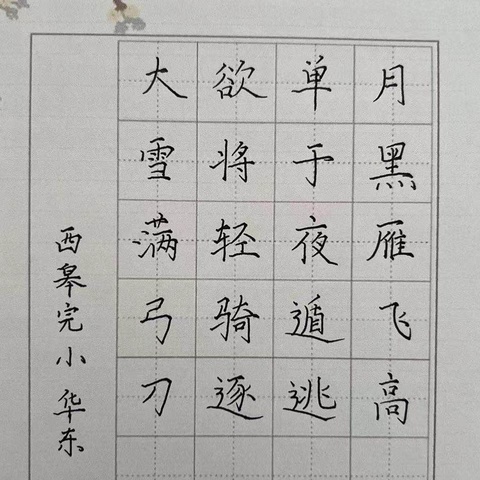 月黑雁飞高
单于夜遁逃
欲将轻骑逐
大雪满弓刀
西皋完小 华东